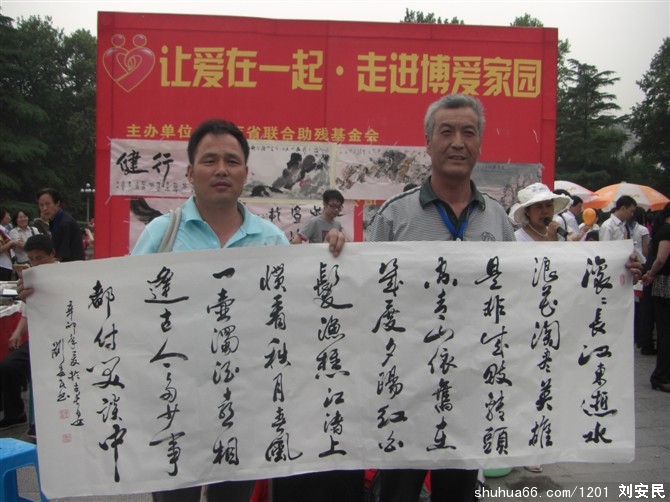 让爱在一起·走进博爱家园
主办单位
省联合助残基金会
健行
滚〻長江東逝水
浪花淘尽英雄
是非成敗转頭
空青山依舊在
幾度夕陽红白
髮渔樵江渚上
惯看秋月春風
一壶浊酒喜相
逢古今多少事
都付笑谈中
shuhua66.com/1201 刘安民